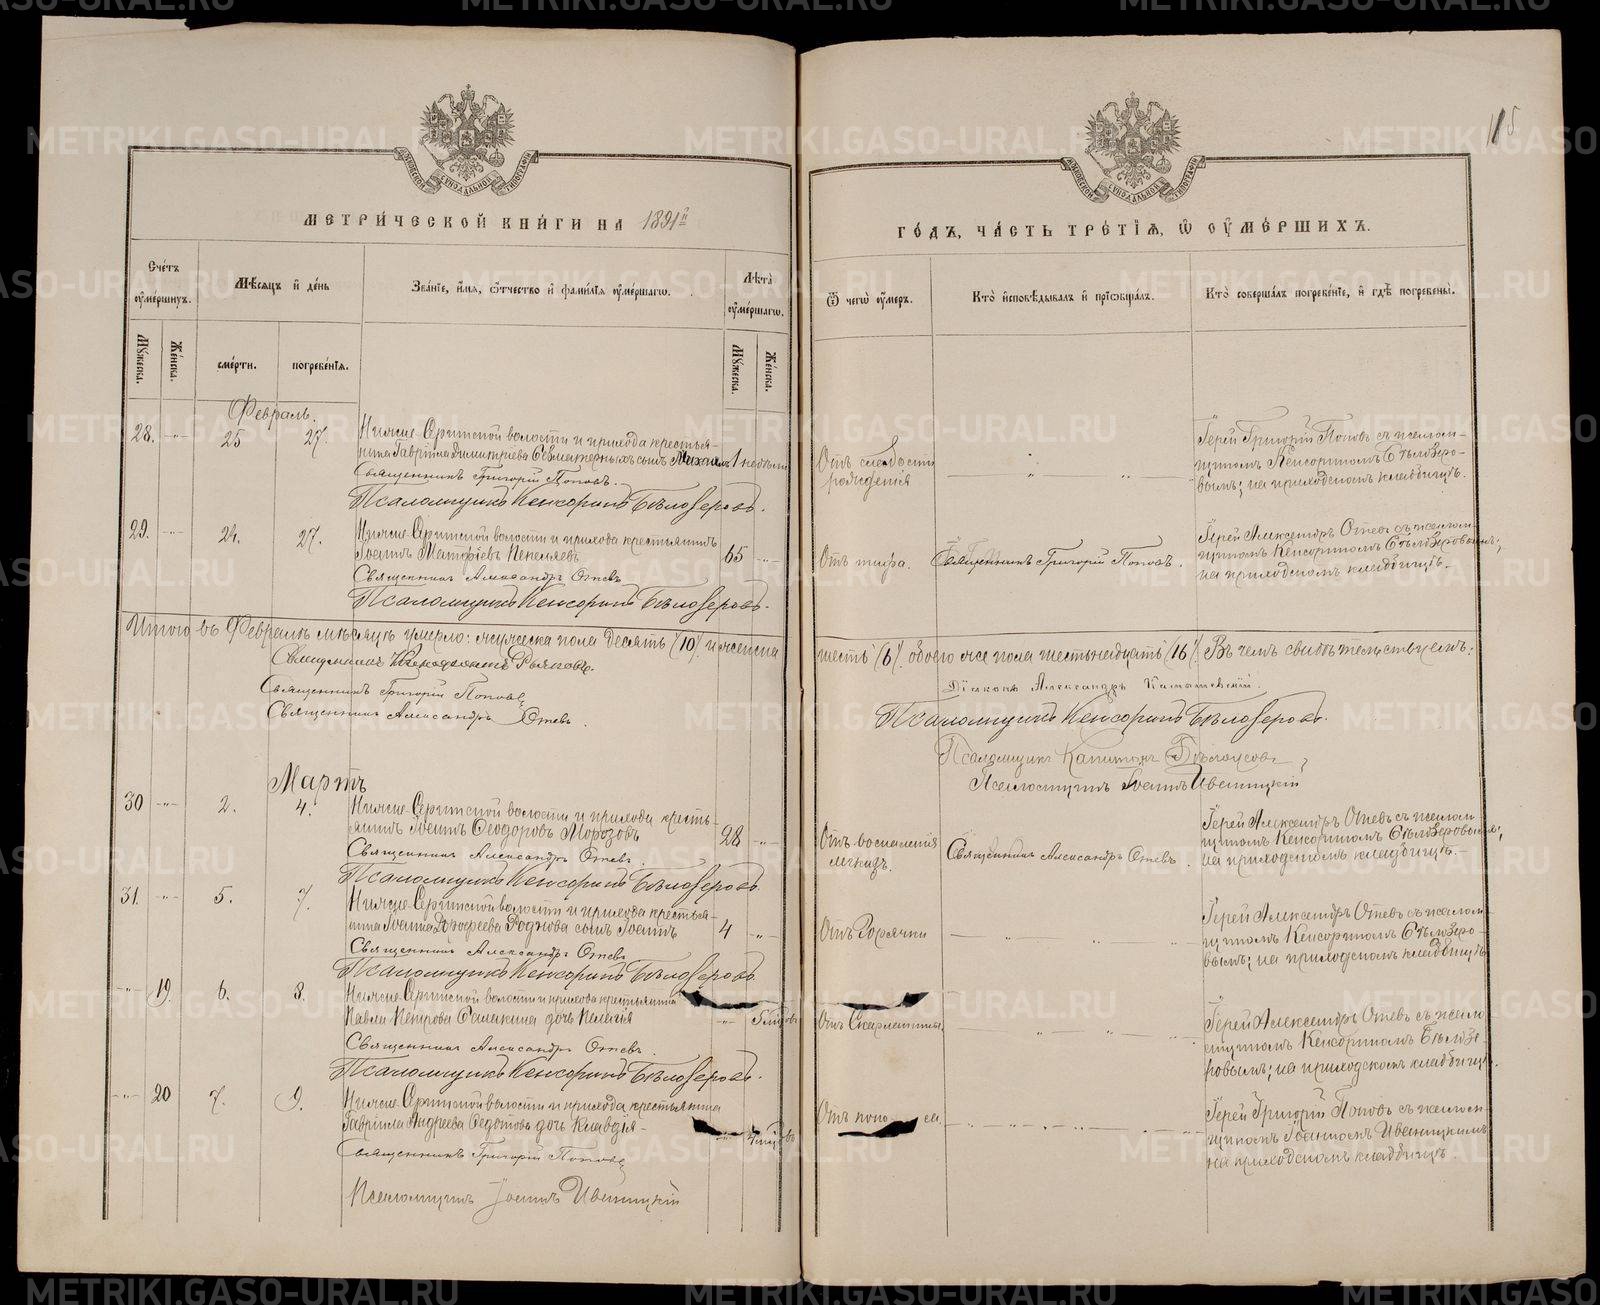 115
МЕТРИ́ЧЕСКОЙ КНИ́ГИ НА 1891й
ГО́ДЪ, ЧА́СТЬ ТРЕ́ТІѦ, Ѡ҆ ОУ҆МЕ́РШИХЪ.
Сче́тъ оу҆ме́ршихъ.
Мѣ́сѧцъ и҆ де́нь
Зва́ніе, и҆́мѧ, ѻ҆́тчество и҆ фами́лїѧ оу҆ме́ршагѡ.
Лѣ́та оу҆ме́ршагѡ.
Ѿ чегѡ̀ оу҆́меръ.
Кто̀ и҆сповѣ́дывалъ и҆ прїѡбща́лъ.
Кто̀ соверша́лъ погребе́нїе, и҆ гдѣ̀ погребены̀.
Мꙋ́жеска.
Же́нска.
сме́рти.
погребе́нїѧ.
Мꙋ́жеска.
Же́нска.
Февраль.
28. -"- 25 27. Нижне-Сергинской волости и прихода крестья-
нина Гавріила Димитріева сынъ Михаилъ 1 недѣли
Священникъ Григорій Поповъ.
Псаломщикъ Кенсоринъ Бѣлозеровъ.
Отъ слабости
рожденія
Іерей Григорій Поповъ съ псалом-
щикомъ Кенсориномъ Бѣлозеро-
вымъ; на приходскомъ кладбищѣ.
29. -"- 24. 27. Нижне-Сергинской волости и прихода крестьянинъ
Іоаннъ Матфіевъ 65 -"-
Священникъ Александръ Отевъ
Псаломщикъ Кенсоринъ Бѣлозеровъ.
Отъ тифа.
Священникъ Григорій Поповъ.
Іерей Александръ Отевъ съ псалом-
щикомъ Кенсориномъ Бѣлозеровымъ;
на приходскомъ кладбищѣ.
Итого въ Февралѣ мѣсяцѣ умерло: мужеска пола десять /10/ и женска
шесть /6/. обоего же пола шестьнадцать /16/. Въ чемъ свидѣтельствуемъ:
Священникъ
Священникъ Григорій Поповъ
Священникъ Александръ Отевъ.
Діаконъ Александръ Камышевскій.
Псаломщикъ Кенсоринъ Бѣлозеровъ.
Псаломщикъ Капитонъ
Псаломщикъ Іоаннъ Ивановскій
Мартъ
30 -"- 2. 4. Нижне-Сергинской волости и прихода кресть-
янинъ Іоаннъ Ѳеодоровъ Морозовъ 28 -"-
Священникъ Александръ Отевъ.
Псаломщикъ Кенсоринъ Бѣлозеровъ.
Отъ воспаленія
легкихъ.
Священникъ Александръ Отевъ.
Іерей Александръ Отевъ съ псалом
щикомъ Кенсориномъ Бѣлозеровымъ;
на приходскомъ кладбищѣ.
31. -"- 5. 7. Нижне-Сергинской волости и прихода крестья-
нина Іоанна сынъ Іоаннъ 4 -"-
Священникъ Александръ Отевъ
Псаломщикъ Кенсоринъ Бѣлозеровъ.
Отъ Горячки
Іерей Александръ Отевъ съ псалом-
щикомъ Кенсориномъ Бѣлозеро-
вымъ; на приходскомъ кладбищѣ
-"- 19. 6. 8. Нижне-Сергинской волости и прихода крестьянина
Павла Петрова дочь Пелагія -"-
Священникъ Александръ Отевъ.
Псаломщикъ Кенсоринъ Бѣлозеровъ.
Отъ Скарлатины
Іерей Александръ Отевъ съ псало
мщикомъ Кенсориномъ Бѣлозе-
ровымъ; на приходскомъ кладбищѣ.
-"- 20 7. 9. Нижне-Сергинской волости и прихода крестьянина
Гавріила Андреева Ѳедотова дочь Клавдія
Священникъ Григорій Поповъ
Псаломщикъ Іоаннъ Ивановскій
Отъ поно са.
Іерей Григорій Поповъ съ псалом-
щикомъ Іоанномъ
на приходскомъ кладбищѣ.
METRIKI.GASO-URAL.RU